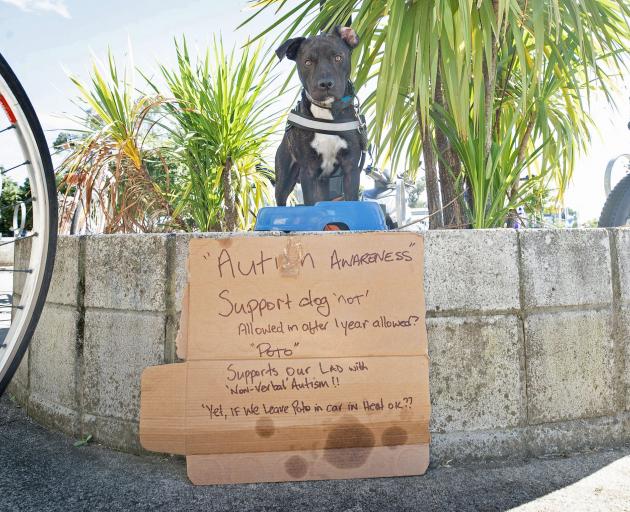 "Autism AWARENESS"
Support dog 'NOT'
Allowed in after 1year allowed?
"POTO"
Supports our LAD with
'Non-Verbal' Autism!!
'Yet, IF We Leave Poto in car in Heat OK??